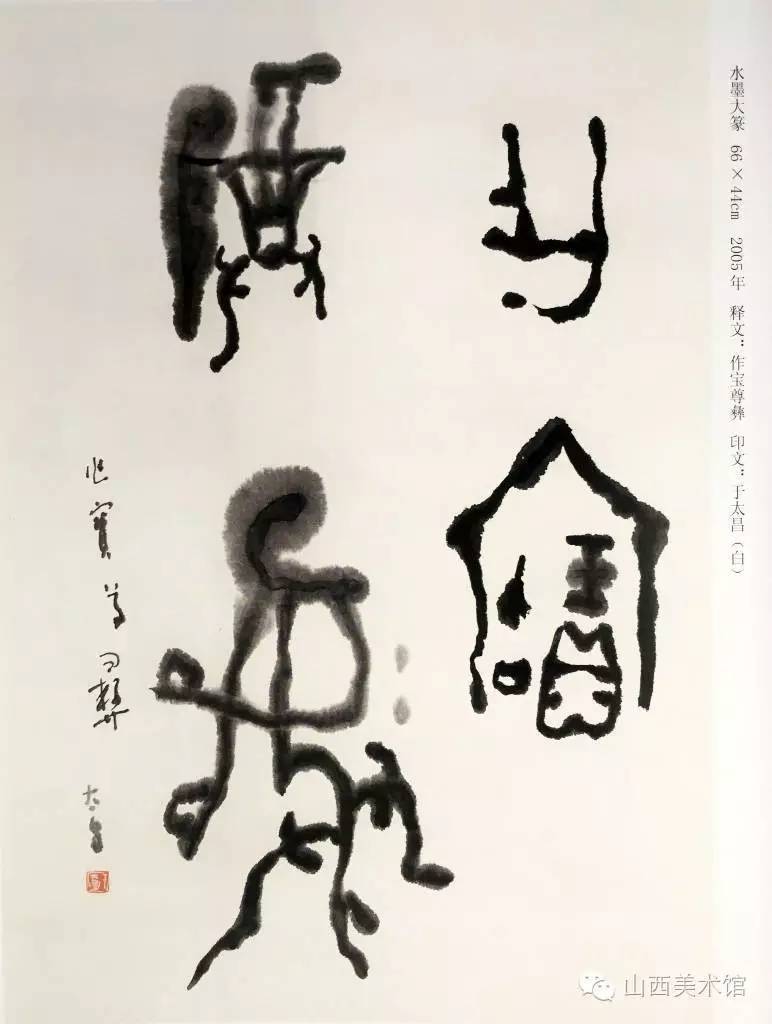 水墨大篆 66×44cm 2005年 释文：作宝尊彝 印文：于太昌（白）
乍寶
尊彝
乍寶尊彝
太昌
山西美术馆